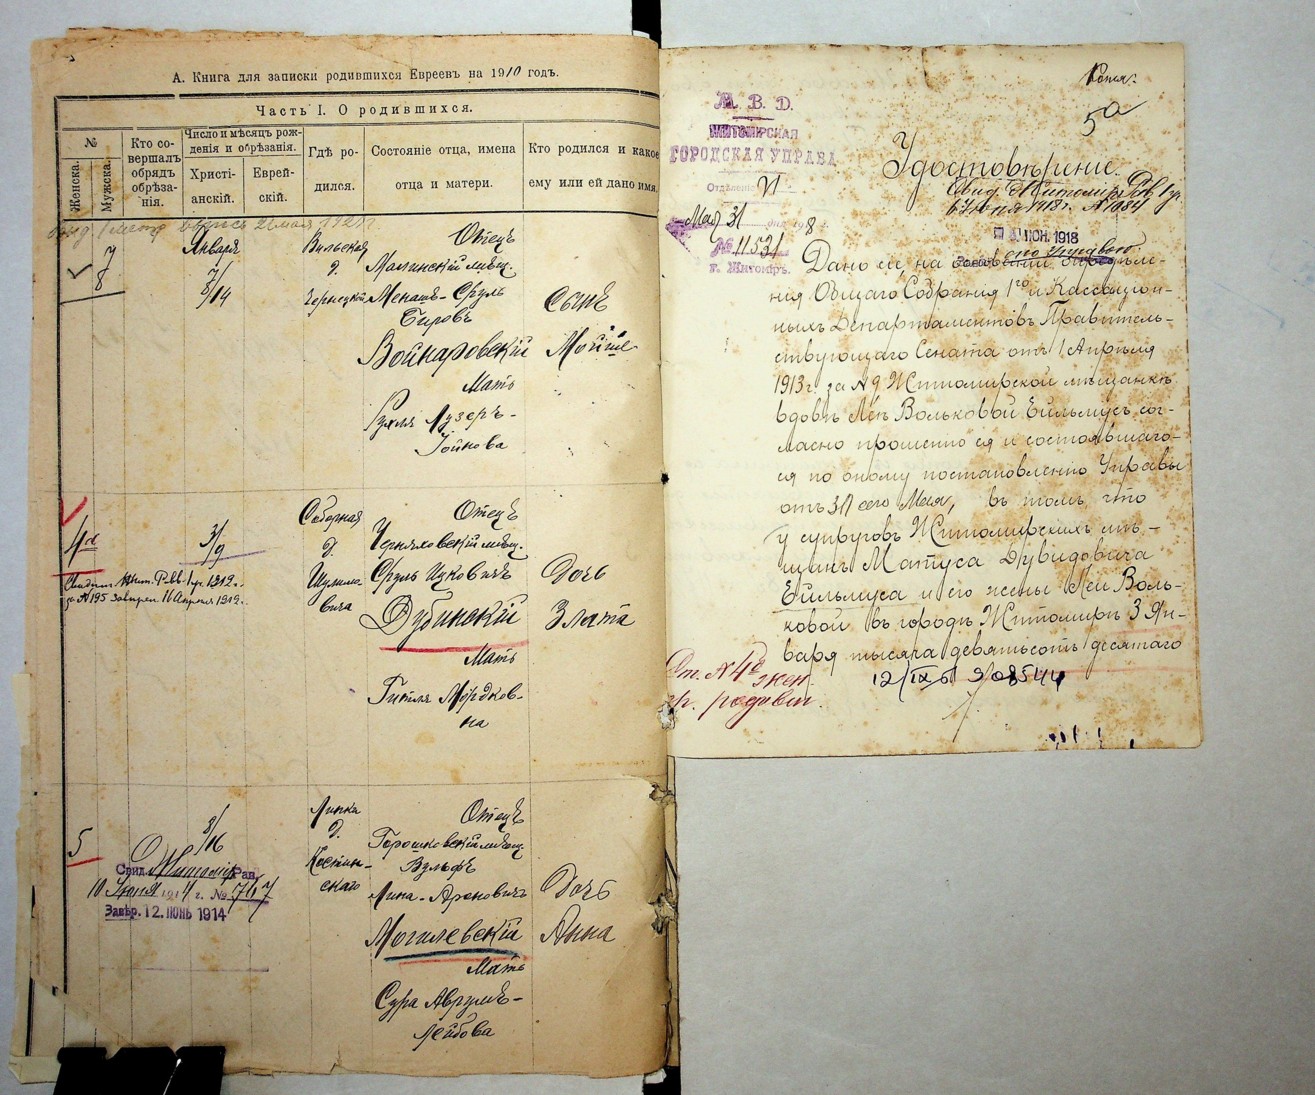 А. Книга для записки родившихся Евреевъ на 1910 годъ.
Часть I. О родившихся.
№
Женска.
Мужска.
Кто со-
вершалъ
обрядъ
обрѣза-
нія.
Число и мѣсяцъ рож-
денія и обрѣзанія.
Христі-
анскій.
Еврей-
скій.
Гдѣ ро-
дился.
Состояніе отца, имена
отца и матери.
Кто родился и какое
ему или ей дано имя.
Января
7
8
7/
8/14
Вильская
д.
Отецъ
Малинскій мѣщ.
Менашъ-Сруль
Войнаровскій
Мать
Рухля Лузеръ-
Іойнова
Сынъ
Мойше
4а
3/9
Соборная
д.
Шулимо-
вича
Отецъ
Черняховскій мѣщ.
Сруль Ицковичъ
Дубинскій
Мать
Гитля Мордков-
на
Дочь
Злата
5
8/16
Свид. Житомір Рав.
10 Іюня 1914 г. № 767
Завѣр. 12. ІЮНЬ 1914
д.
Костин-
скаго
Отецъ
Горошковскій мѣщ.
Вульфъ
Пина-Ароновичъ
Могилевскій
Мать
Сура Аврумъ-
Лейбова
Дочь
Анна
Копія.
5а
М. В. Д.
ЖИТОМІРСКАЯ
ГОРОДСКАЯ УПРАВА
Отдѣленіе VI
Мая 31 дня 1918 г.
№ 11531
г. Житоміръ.
Удостовѣреніе.
Свид. Житомір. Рав. 1 уч.
6 Іюня 1918 г. № 1084
ІЮН. 1918
Дано сіе, на основаніи опредѣле-
нія Общаго Собранія 1го и Кассаціон-
ныхъ Департаментовъ Правитель-
ствующаго Сената отъ 1 Апрѣля
1913 г. за № 9 Житомирской мѣщанкѣ
вдовѣ Леѣ Вольковой Ейльмусъ сог-
ласно прошенію ея и состоявшаго-
ся по оному постановленію Управы
отъ 31 сего Мая, въ томъ, что
у супруговъ Житомирскихъ мѣ-
щанъ Матуса Дувидовича
Ейльмуса и его жены Леи Воль-
ковой въ городѣ Житомирѣ 3 Ян-
варя тысяча девятьсотъ десятаго
От. № 4а жен.
гр. родивш.